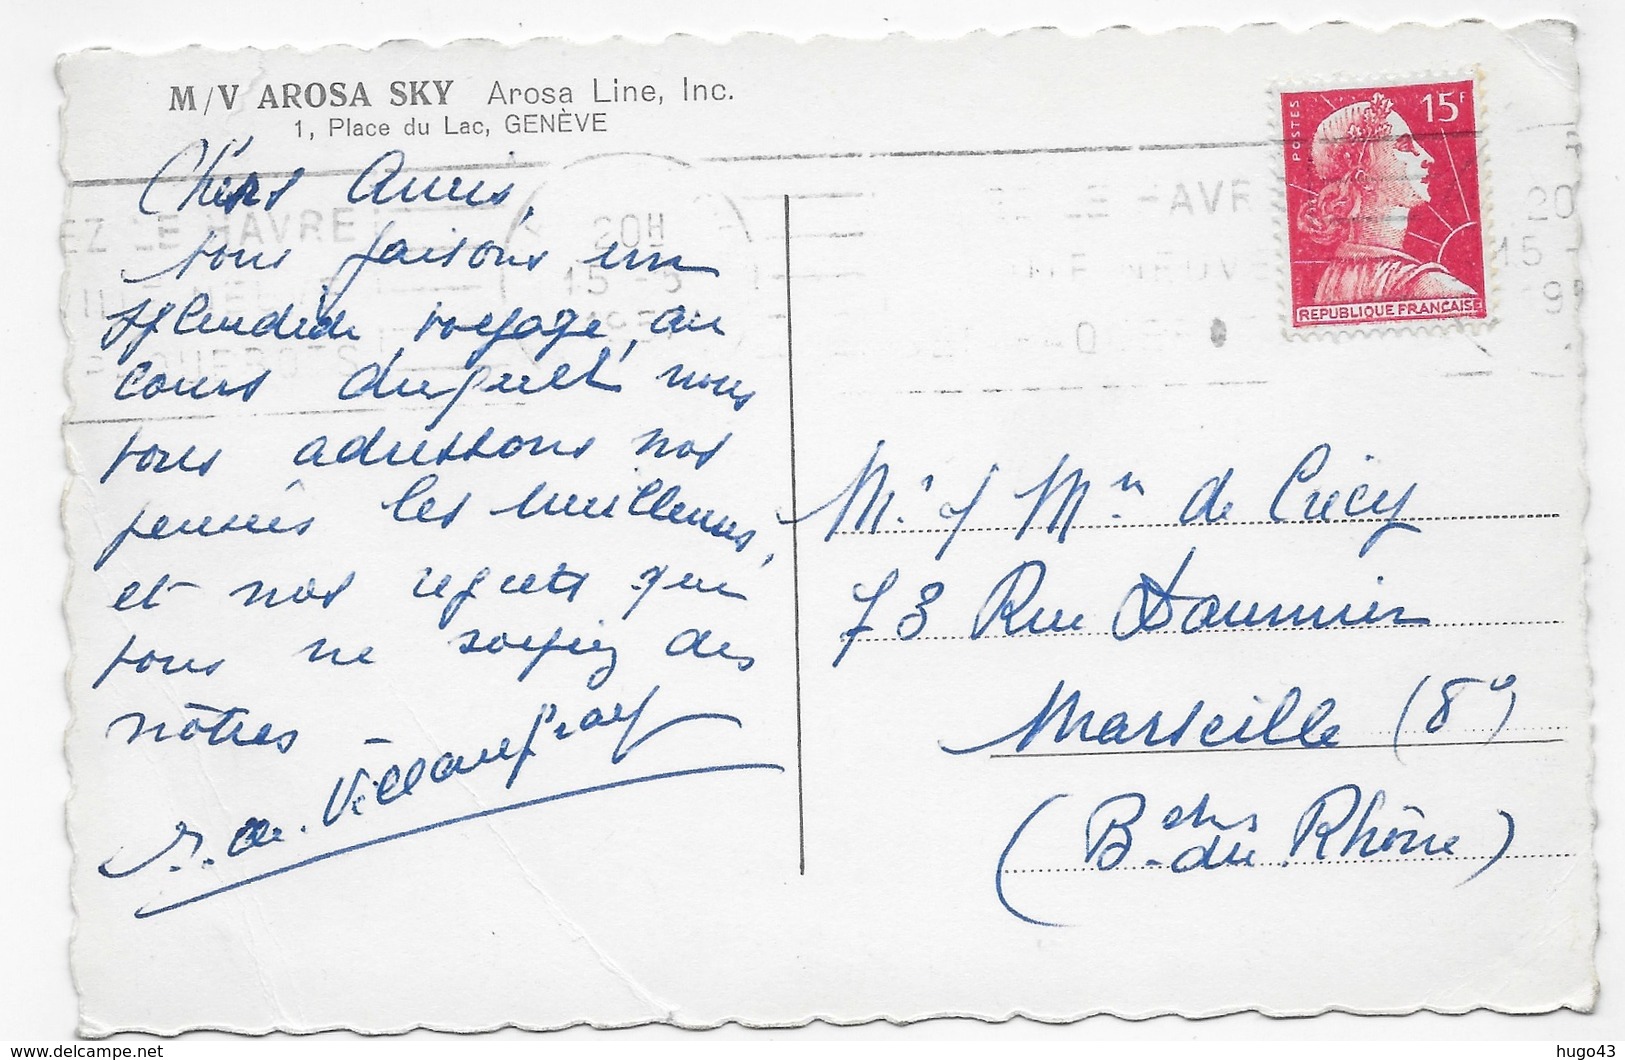 M/V AROSA SKY Arosa Line, Inc.
1, Place du Lac, GENÈVE
Chers Amis,
Nous faisons un
splendide voyage, au
cours duquel nous
vous adressons nos
pensées les meilleures,
et nos regrets que
vous ne soyiez des
nôtres -
de Villaufray
EZ LE HAVRE
20H
15-5
PAQUEBOTS
LE HAVR
NEUVE
20
15-
POSTES
15F
REPUBLIQUE FRANÇAISE
Mr & Mme de Crécy
73 Rue Daumier
Marseille (8e)
(Bches du Rhône)
hugo43